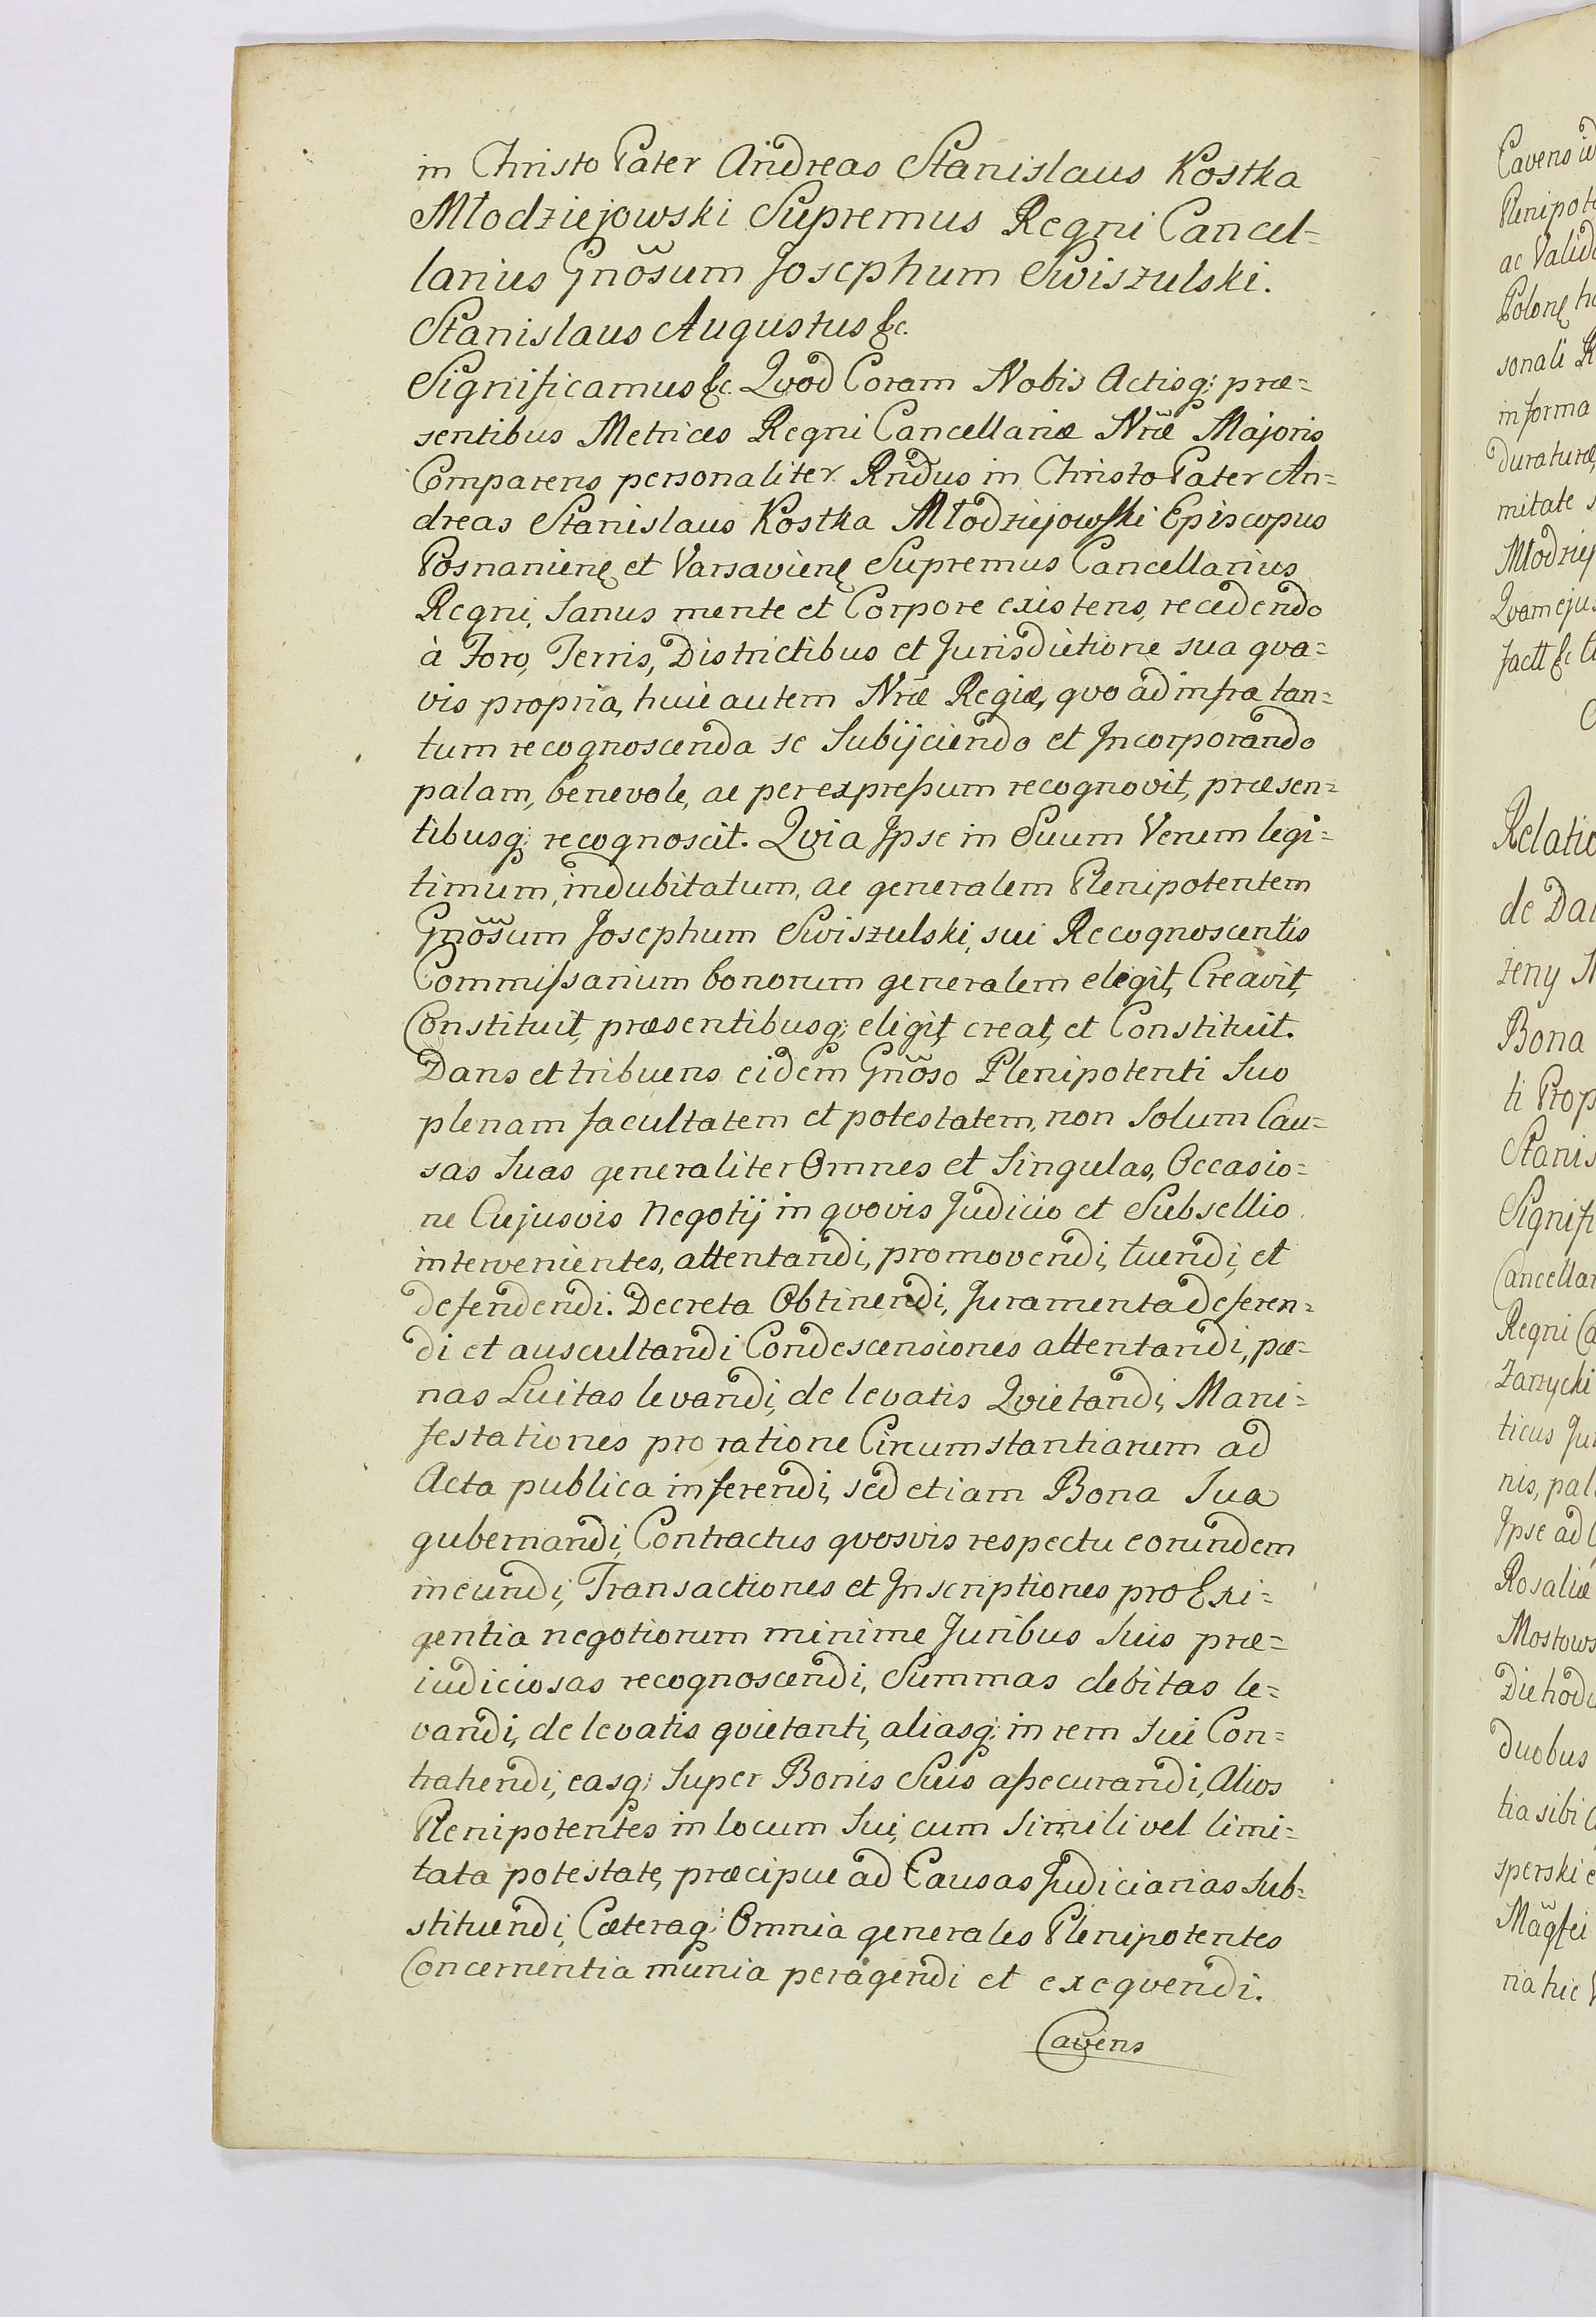 in Christo Pater Andreas Stanislaus Kostka
Młodziejowski Supremus Regni Cancel=
larius Gnõsum Josephum Swiszulski.
Stanislaus Augustus &c.
Significamus &c. Qvod Coram Nobis Actisq; præ=
sentibus Metrices Regni Cancellariæ Nr̃æ Majoris
Comparens personaliter Rñdus in Christo Pater An=
dreas Stanislaus Kostka Młodziejowski Episcopus
Posnanienę et Varsavienę Supremus Cancellarius
Regni, Sanus mente et Corpore existens, recedendo
à Foro, Terris, Districtibus et Jurisdictione sua qva=
vis propria, huic autem Nr̃æ Regiæ, qvo ad infra tan=
tum recognoscenda se Subijciendo et Incorporando
palam, benevole, ac per expreſsum recognovit, præsen=
tibusq; recognoscit. Qvia Ipse in Suum Verum legi=
timum, indubitatum, ac generalem Plenipotentem
Gnõsum Josephum Swiszulski, sui Recognoscentis
Commiſsarium bonorum generalem elegit, Creavit,
Constituit, præsentibusq; eligit, creat, et Constituit.
Dans et tribuens eidem Gnõso Plenipotenti Suo
plenam facultatem et potestatem, non Solum Cau=
sas Suas generaliter Omnes et Singulas, Occasio=
ne Cujusvis Negotij in qvovis Judicio et Subsellio
intervenientes, attentandi, promovendi, tuendi, et
defendendi. Decreta Obtinendi, Juramenta deferen=
di et auscultandi Condescensiones attentandi, pæ=
nas Luitas levandi, de levatis Qvietandi, Mani=
festationes pro ratione Circumstantiarum ad
Acta publica inferendi, sed etiam Bona Sua
gubernandi, Contractus qvosvis respectu eorundem
ineundi, Transactiones et Inscriptiones pro Exi=
gentia negotiorum minime Juribus Suis præ=
iudiciosas recognoscendi, Summas debitas le=
vandi, de levatis qvietanti, aliasq; in rem Sui Con=
trahendi, easq; Super Bonis Suis aſsecurandi, Alios
Plenipotentes in locum Sui, cum Simili vel limi=
tata potestate, præcipue ad Causas Judiciarias Sub=
stituendi, Cæteraq; Omnia generales Plenipotentes
Concernentia munia peragendi et exeqvendi.
Cavens
Cavens
Plenipote
ac Valid
Polonę
sonali
in forma
duraturæ
mitate
Młodziej
Qvam ejus
factt &c
Relatio
de
żeny
Bona
ti Prop
Stanis
Signifi
Cancellar
Regni
Zarzycki
ticus
nis, pal
Ipse ad
Rosaliæ
Mostows
Die hod
duobus
tia sibi
sperski
Mãgfci
ria hic